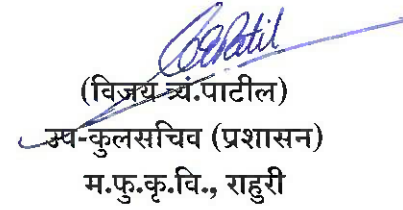 (विजय त्र्यं.पाटील)
उप-कुलसचिव (प्रशासन)
म.फु.कृ.वि., राहुरी